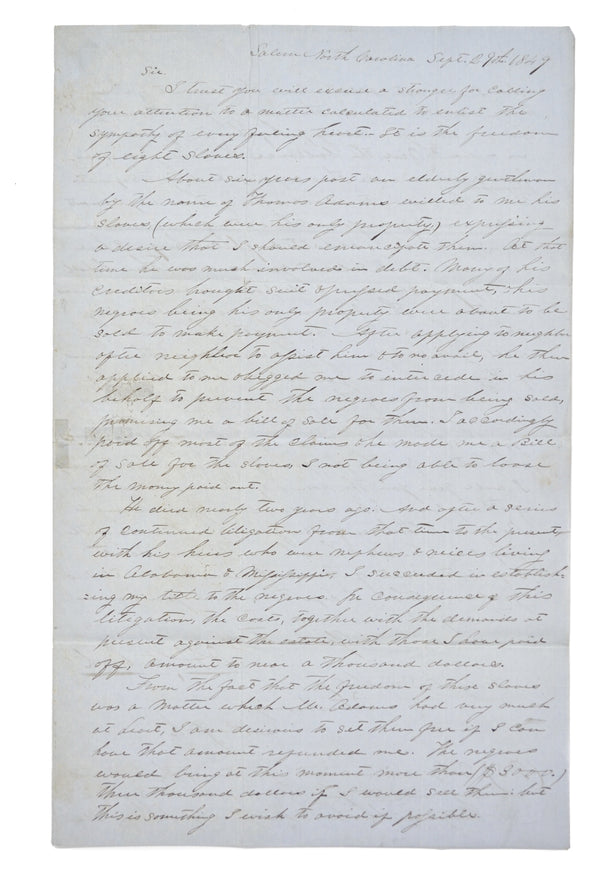 Salem North Carolina Sept. 29th 1849
Sir.
I trust you will excuse a stranger for calling
your attention to a matter calculated to enlist the
sympathy of every feeling heart. It is the freedom
of eight slaves.
About six years past an elderly gentleman
by the name of Thomas Adams willed to me his
slaves, (which were his only property,) expressing
a desire that I should emancipate them. At that
time he was much involved in debt. Many of his
creditors brought suit & pressed payment, & his
negroes being his only property were about to be
sold to make payment. After applying to neighbor
after neighbor to assist him & to no avail, he then
applied to me & begged me to entercede in his
behalf to prevent the negroes from being sold,
promising me a bill of sale for them. I accordingly
paid off most of the claims & he made me a Bill
of Sale for the slaves, I not being able to loose
the money paid out.
He died nearly two years ago. And after a series
of continued litigation from that time to the present,
with his heirs who were nephews & neices living
in Alabama & Mississippi, I succeeded in establish-
ing my title to the negroes. In consequence of this
litigation, the costs, together with the demands at
present against the estate, with those I have paid
off, amount to near a thousand dollars.
From the fact that the freedom of these slaves
was a matter which Mr. Adams had very much
at heart, I am desirous to set them free if I can
have that amount refunded me. The negroes
would bring at this moment more than ($3000.)
three thousand dollars if I would sell them: but
this is something I wish to avoid if possible.